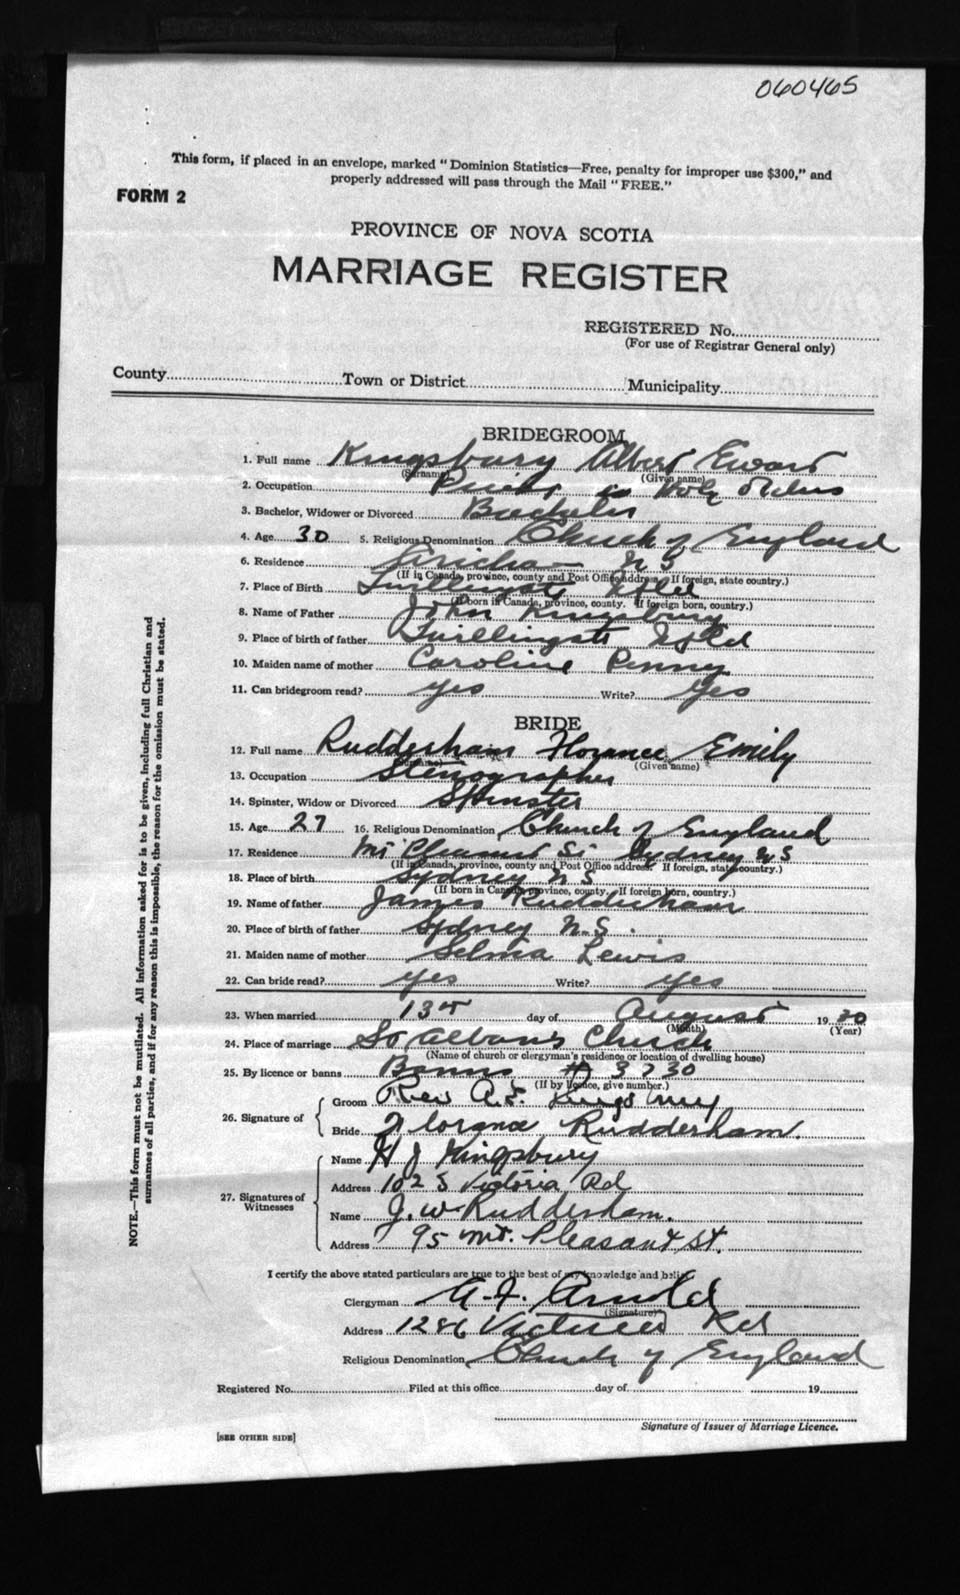 060465
This form, if placed in an envelope, marked "Dominion Statistics—Free, penalty for improper use $300," and
properly addressed will pass through the Mail "FREE."
FORM 2
PROVINCE OF NOVA SCOTIA
MARRIAGE REGISTER
REGISTERED No.
(For use of Registrar General only)
County Town or District Municipality
BRIDEGROOM
1. Full name Kingsbury Albert
(Surname) (Given name)
2. Occupation Priest in Holy Orders
3. Bachelor, Widower or Divorced Bachelor
4. Age 30 5. Religious Denomination Church of England
6. Residence Arichat N S
(If in Canada, province, county and Post Office address. If foreign, state country.)
7. Place of Birth Twillingate Nfld
(If born in Canada, province, county. If foreign born, country.)
8. Name of Father John Kingsbury
9. Place of birth of father Twillingate Nfld
10. Maiden name of mother Caroline Penny
11. Can bridegroom read? yes Write? yes
BRIDE
12. Full name Rudderham Florance Emily
(Surname) (Given name)
13. Occupation Stenographer
14. Spinster, Widow or Divorced Spinster
15. Age 27 16. Religious Denomination Church of England
17. Residence Mt Pleasant St Sydney N S
(If in Canada, province, county and Post Office address. If foreign, state country.)
18. Place of birth Sydney N S
(If born in Canada, province, county. If foreign born, country.)
19. Name of father James Rudderham
20. Place of birth of father Sydney N.S.
21. Maiden name of mother Selma Lewis
22. Can bride read? yes Write? yes
23. When married 13th day of August 19
(Month) (Year)
24. Place of marriage St Alban's Church
(Name of church or clergyman's residence or location of dwelling house)
25. By licence or banns Banns # 3730
(If by licence, give number.)
26. Signature of
Groom Rev A.E. Kingsbury
Bride Florance Rudderham.
27. Signatures of Witnesses
Name H J Kingsbury
Address 1025 Victoria Rd
Name J. W. Rudderham.
Address 95 Mt. Pleasant St.
I certify the above stated particulars are true to the best of my knowledge and belief
Clergyman A. F. Arnold
(Signature)
Address 1286 Victoria Rd
Religious Denomination Church of England
Registered No. Filed at this office day of 19
Signature of Issuer of Marriage Licence.
[SEE OTHER SIDE]
NOTE.—This form must not be mutilated. All information asked for is to be given, including full Christian and
surnames of all parties, and if for any reason this is impossible, the reason for the omission must be stated.